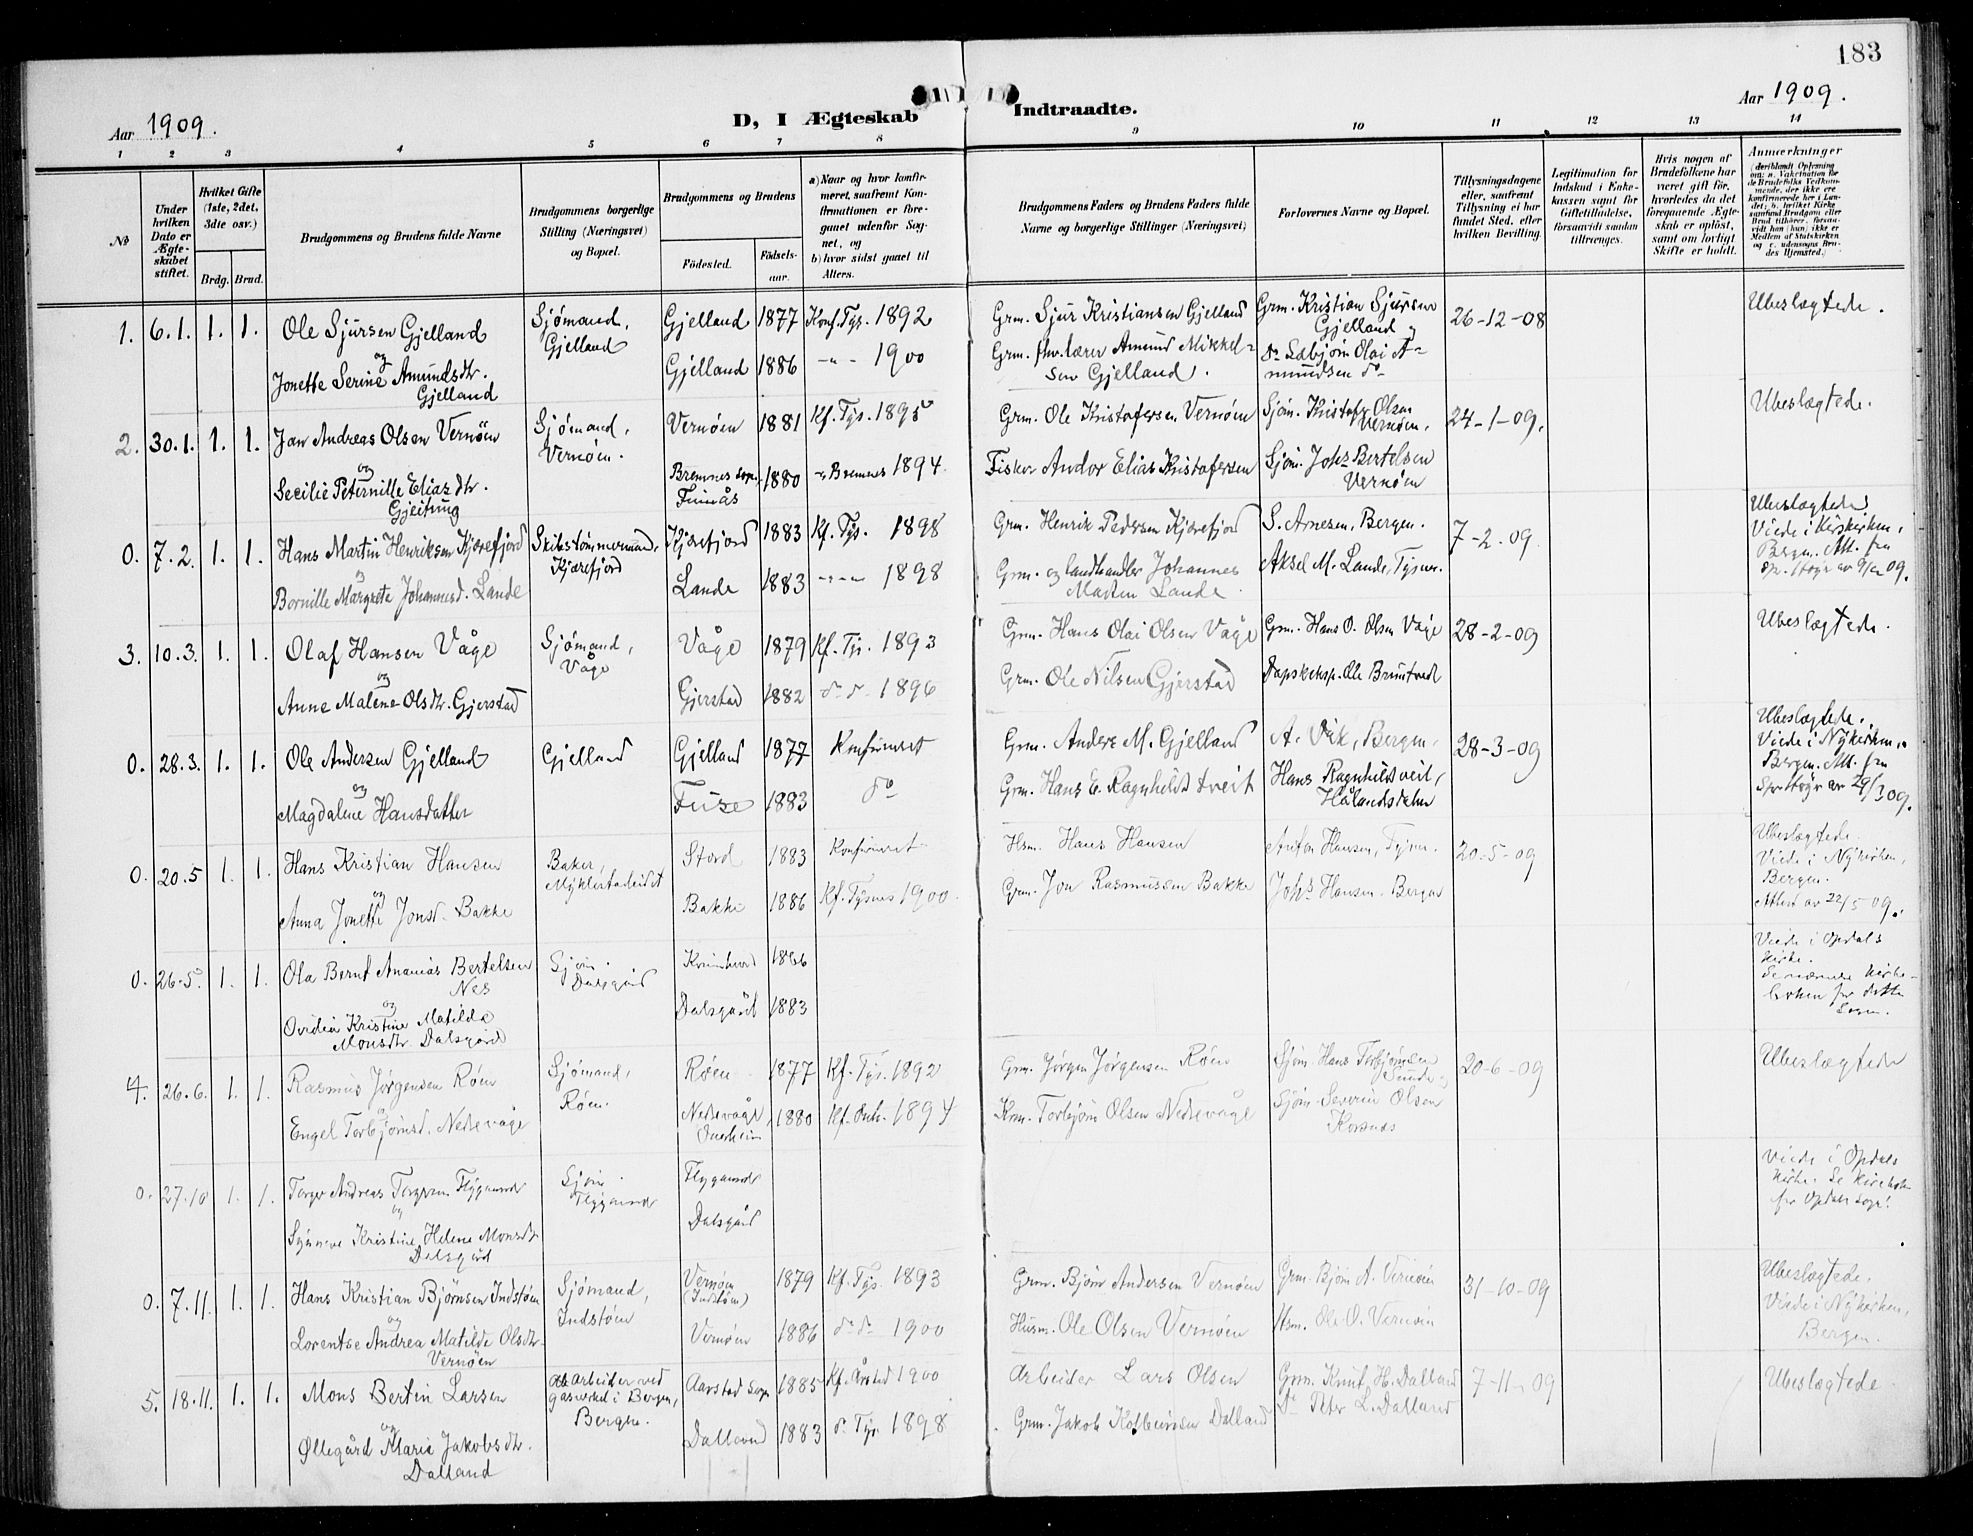 183
Aar 1909.
D, I Ægteskab Indtraadte.
Aar 1909.
1 2 3 4 5 6 7 8 9 10 11 12 13 14
No
Under hvilken Dato er Ægteskabet stiftet.
Hvilket Gifte (1ste, 2det, 3dte osv.)
Brdg. Brud.
Brudgommens og Brudens fulde Navne
Brudgommens borgerlige Stilling (Næringsvei) og Bopæl.
Brudgommens og Brudens
Fødested.
Fødselsaar.
a) Naar og hvor konfirmeret, saafremt Konfirmationen er foregaaet udenfor Sognet, og
b) hvor sidst gaaet til Alters.
Brudgommens Faders og Brudens Faders fulde Navne og borgerlige Stillinger (Næringsvei)
Forlovernes Navne og Bopæl.
Tillysningsdagene eller, saafremt Tillysning ei har fundet Sted, efter hvilken Bevilling.
Legitimation for Indskud i Enkekassen samt for Giftetilladelse, forsaavidt saadan tiltrænges.
Hvis nogen af Brudefolkene har været gift før, hvorledes da det foregaaende Ægteskab er opløst, samt om lovligt Skifte er holdt.
Anmærkninger
1. 6.1. 1. 1. Ole Sjursen Gjelland
og
Jonette Serine Amundsdtr. Gjelland
Sjømand, Gjelland
Gjelland 1877 Konf. Tys. 1892
Gjelland 1886 -"- 1900
Grm. Sjur Kristiansen Gjelland
Grm. fhv. lærer Amund Mikkelsen Gjelland.
Grm. Kristian Sjursen Gjelland og
do Olai Amundsen do
26-12-08
Ubeslægtede.
2. 30.1. 1. 1. Jan Andreas Olsen Vernøen
og
Secilie Peternille Eliasdtr. Gjeitung
Sjømand, Vernøen.
Vernøen 1881 Kf. Tys. 1895
Bremnes sogn, 1880 -" Bremnes 1894.
Grm. Ole Kristofersen Vernøen
Fisker Andor Elias Kristofersen
Sjøm. Kristofr Olsen Vernøen,
Sjøm. Johs Bertelsen Vernøen
24-1-09.
Ubeslægtede.
0. 7.2. 1. 1. Hans Martin Henriksen Kjærefjord
og
Bornille Margrete Johannesd. Lande
Skibstømmermand, Kjærefjord
Kjærefjord 1883 Kf. Tys. 1898
Lande 1883 -"-"- 1898
Grm. Henrik Pedersen Kjærefjord
Grm. og landhandler Johannes Marten Lande.
S. Arnesen, Bergen.
Aksel M. Lande, Tysnes.
7-2-09.
Ubeslægtede.
Viede i
Bergen. Att. fra
3. 10.3. 1. 1. Olaf Hansen Våge
og
Anne Malene Olsdtr. Gjerstad
Sjømand, Våge
Våge 1879 Kf. Tys. 1893
Gjerstad 1882 do do 1896
Grm. Hans Olai Olsen Våge
Grm. Ole Nilsen Gjerstad
Grm. Hans O. Olsen Våge
Ole Bruntveit
28-2-09
Ubeslægtede.
0. 28.3. 1. 1. Ole Andersen Gjelland
og
Magdalene Hansdatter
Gjelland
Gjelland 1877 Konfirmeret
Fuse 1883 do
Grm. Anders M. Gjelland
Grm. Hans E. Ragnhildstveit
A. Vik, Bergen.
Hans Ragnhildstveit, Hålandsdalen
28-3-09
Ubeslægtede.
Viede i Nykirken,
Bergen. Att. fra
Sprsthogr av 29/3 09.
0. 20.5 1. 1. Hans Kristian Hansen
og
Anna Jonette Jonsd. Bakke
Baker, Myklestadeidet
Stord 1883 Konfirmeret
Bakke 1886 Kf. Tysnes 1900.
Hsm. Hans Hansen
Grm. Jon Rasmussen Bakke
Anton Hansen, Tysnes.
Johs Hansen. Bergen
20-5-09
Ubeslægtede.
Viede i Nykirken,
Bergen.
Attest av 22/5 09.
0. 26.5. 1. 1. Ola Bernt Ananias Bertelsen Nes
og
Ovidia Kristine Matilda Monsdtr. Dalsgård
Sjøm. Dalsgård
1866
Dalsgård 1883
Viede i Opdals
Kirke.
Se nævnte kirkeboken for dette
Sogn.
4. 26.6. 1. 1. Rasmus Jørgensen Røen
og
Engel Torbjørnsd. Nedrevåge
Sjømand, Røen.
Røen 1877 Kf. Tys. 1892
Nedrevåge, 1880 1894
Grm. Jørgen Jørgensen Røen
Torbjørn Olsen Nedrevåge
Sjøm. Hans Torbjørnsen Sunde og
Sjøm. Severin Olsen Korsnes
20-6-09
Ubeslægtede
0. 27.10 1. 1. Torger Andreas Torgersen Flygansvær
og
Synneve Kristine Helene Monsdtr. Dalsgård
Sjøm. Flygansvær
Flygansvær
Dalsgård
Viede i Opdals
Kirke. Se kirkebok
for Opdals sogn!
0. 7.11. 1. 1. Hans Kristian Bjørnsen Indstøen
og
Lorentse Andrea Matilde Olsdtr. Vernøen
Sjømand, Indstøen
Vernøen (Indstøen) 1879 Kf. Tys. 1893
Vernøen 1886 do do 1900
Grm. Bjørn Andersen Vernøen
Husm. Ole Olsen Vernøen
Grm. Bjørn A. Vernøen
Hsm. Ole O. Vernøen
31-10-09
Ubeslægtede.
Viede i Nykirken,
Bergen.
5. 18.11. 1. 1. Mons Bertin Larsen
og
Øllegård Marie Jakobsdtr. Dalland
arbeider ved gasverket i Bergen, Bergen.
Aarstad sogn 1885 Kf. Årstad 1900
Dalland 1883 do Tys. 1898
Arbeider Lars Olsen
Grm. Jakob Kolbeinsen Dalland
Grm. Knut H. Dalland
Do Peter L. Dalland
7-11-09
Ubeslægtede